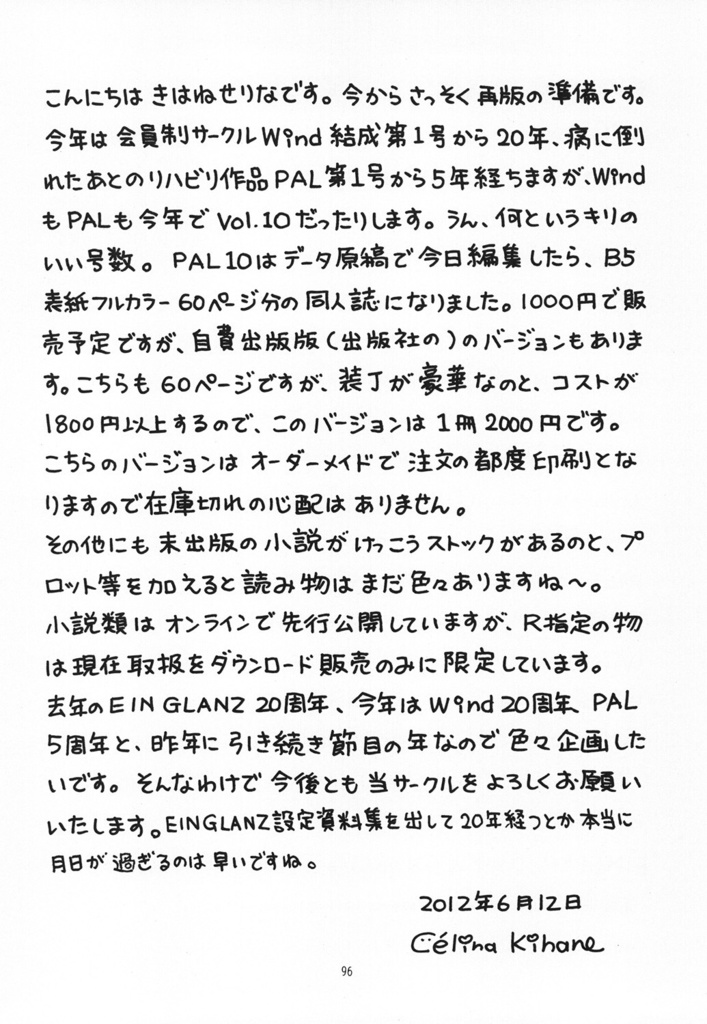 こんにちは きはねせりなです。今からさっそく再版の準備です。
今年は会員制サークルWind結成第1号から20年、病に倒
れたあとのリハビリ作品PAL第1号から5年経ちますが、Wind
もPALも今年でVol.10だったりします。うん、何というキリの
いい号数。PAL10はデータ原稿で今日編集したら、B5
表紙フルカラー60ページ分の同人誌になりました。1000円で販
売予定ですが、自費出版版(出版社の)のバージョンもありま
す。こちらも60ページですが、装丁が豪華なのと、コストが
1800円以上するので、このバージョンは1冊2000円です。
こちらのバージョンはオーダーメイドで注文の都度印刷とな
りますので在庫切れの心配はありません。
その他にも未出版の小説がけっこうストックがあるのと、プ
ロット等を加えると読み物はまだ色々ありますね〜。
小説類はオンラインで先行公開していますが、R指定の物
は現在取扱をダウンロード販売のみに限定しています。
去年のEIN GLANZ 20周年、今年はWind20周年、PAL
5周年と、昨年に引き続き節目の年なので色々企画した
いです。そんなわけで今後とも当サークルをよろしくお願い
いたします。EINGLANZ設定資料集を出して20年経つとか本当に
月日が過ぎるのは早いですね。
2012年6月12日
Célina Kihane
96